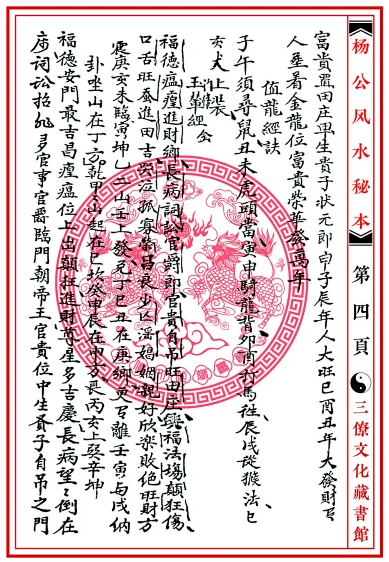 杨公风水秘本 第四頁 三僚文化藏書館
富貴置田庄里生貴子状元郎申子辰年人大旺巳酉丑年大發財百
人坐看金龍位富貴榮華發萬年
值龍經訣
子午須尋鼠丑未虎頭當寅申騎龍背卯酉行馬徃辰戌從猴法巳
亥犬上裝
玉華經
福德瘟瘽進財鄉長病詞訟官爵郎官貴自吊旺田庄興福法塲顛狂傷
口舌旺蚕進田吉哭泣孤寡榮昌長少以滛娼姻親好欣楽敗絶旺財方
震庚亥未臨寅坤乙二山壬上發兌丁巳丑在庚鄉更有離壬寅与戌納
卦坐山在丁方乾甲二山起在巳坎癸申辰在申方艮丙亥上巽辛坤
福德安門最吉昌瘟瘽位上出顛狂進財尊星多吉慶長病望之倒在
床詞訟招非多官事官爵臨門朝帝王官貴位中生貴子自吊之門